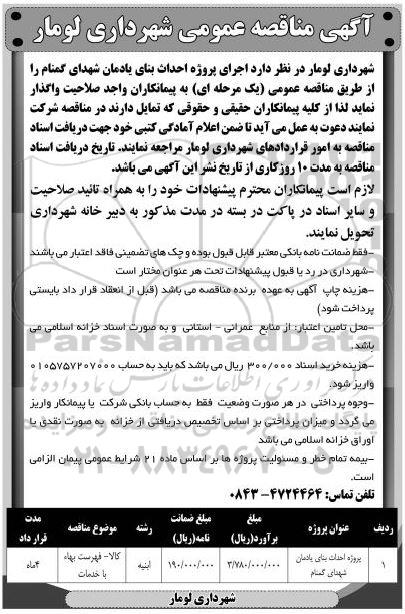 آگهی مناقصه عمومی شهرداری لومار
شهرداری لومار در نظر دارد اجرای پروژه احداث بنای یادمان شهدای گمنام را
از طریق مناقصه عمومی (یک مرحله ای) به پیمانکاران واجد صلاحیت واگذار
نماید لذا از کلیه پیمانکاران حقیقی و حقوقی که تمایل دارند در مناقصه شرکت
نمایند دعوت به عمل می آید تا ضمن اعلام آمادگی کتبی خود جهت دریافت اسناد
مناقصه به امور قراردادهای شهرداری لومار مراجعه نمایند. تاریخ دریافت اسناد
مناقصه به مدت ۱۰ روزکاری از تاریخ نشر این آگهی می باشد.
لازم است پیمانکاران محترم پیشنهادات خود را به همراه تائید صلاحیت
و سایر اسناد در پاکت در بسته در مدت مذکور به دبیر خانه شهرداری
تحویل نمایند.
-فقط ضمانت نامه بانکی معتبر قابل قبول بوده و چک های تضمینی فاقد اعتبار می باشند
-شهرداری در رد یا قبول پیشنهادات تحت هر عنوان مختار است
-هزینه چاپ آگهی به عهده برنده مناقصه می باشد (قبل از انعقاد قرار داد بایستی
پرداخت شود)
-محل تامین اعتبار: از منابع عمرانی - استانی و به صورت اسناد خزانه اسلامی می
باشد.
-هزینه خرید اسناد ۳۰۰/۰۰۰ ریال می باشد که باید به حساب ۰۱۰۵۷۵۷۲۰۷۰۰۰
واریز شود.
-وجوه پرداختی در هر صورت وضعیت فقط به حساب بانکی شرکت یا پیمانکار واریز
می گردد و میزان پرداختی بر اساس تخصیص دریافتی از خزانه به صورت نقدی یا
اوراق خزانه اسلامی می باشد
-بیمه تمام خطر و مسئولیت پروژه ها بر اساس ماده ۲۱ شرایط عمومی پیمان الزامی
است.
تلفن تماس: ۴۷۲۴۴۶۴-۰۸۴۳
ردیف عنوان پروژه مبلغ برآورد(ریال) مبلغ ضمانت نامه(ریال) رشته موضوع مناقصه مدت قرار داد
۱ پروژه احداث بنای یادمان شهدای گمنام ۳/۷۸۰/۰۰۰/۰۰۰ ۱۹۰/۰۰۰/۰۰۰ ابنیه کالا- فهرست بهاء با خدمات ۴ماه
شهرداری لومار
ParsNamadData